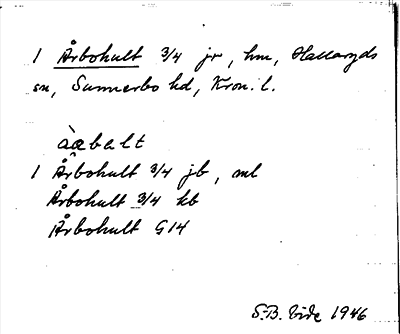 1 Årbohult 3/4 jr, hm, Hallaryds
sn, Sunnerbo hd, Kron. l.
àabalt
1 Årbohult 3/4 jb, ml
Årbohult 3/4 kb
Årbohult G14
S.-B. Vide 1946